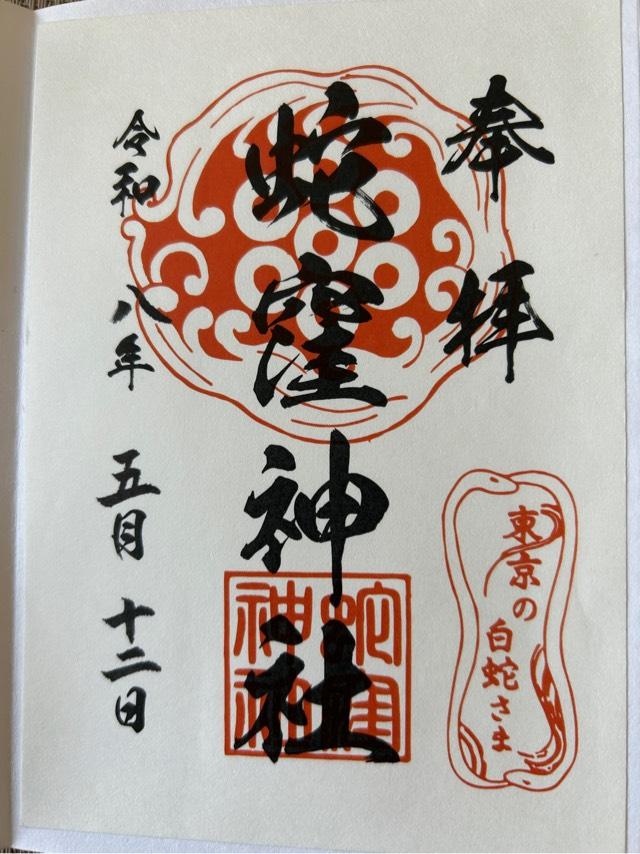 奉拝
東京の
白蛇さま
蛇窪神社
蛇窪
神社
令和八年 五月 十二日